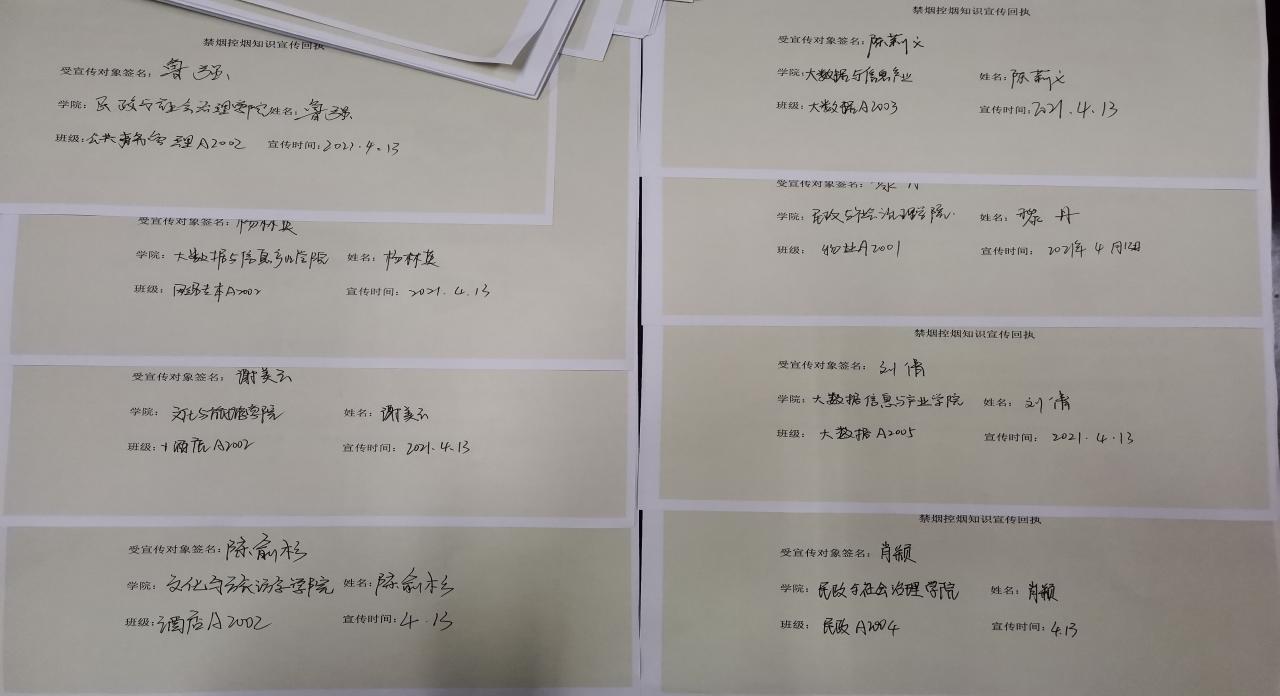 禁烟控烟知识宣传回执
受宣传对象签名：鲁强
学院：民政与社会治理学院 姓名：鲁强
班级：公共事务管理A2002 宣传时间：2021.4.13
受宣传对象签名：杨林英
学院：大数据与信息产业学院 姓名：杨林英
班级：A2002 宣传时间：2021.4.13
受宣传对象签名：谢美云
学院：文化与旅游学院 姓名：谢美云
班级：酒店A2002 宣传时间：2021.4.13
受宣传对象签名：陈俞杉
学院：文化与旅游学院 姓名：陈俞杉
班级：酒店A2002 宣传时间：4.13
禁烟控烟知识宣传回执
受宣传对象签名：陈莉文
学院：大数据与信息产业 姓名：陈莉文
班级：大数据A2003 宣传时间：2021.4.13
受宣传对象签名：
学院：民政与社会治理学院 姓名：丹
班级：物业A2001 宣传时间：2021年4月13日
禁烟控烟知识宣传回执
受宣传对象签名：刘倩
学院：大数据信息与产业学院 姓名：刘倩
班级：大数据A2005 宣传时间：2021.4.13
禁烟控烟知识宣传回执
受宣传对象签名：肖颖
学院：民政与社会治理学院 姓名：肖颖
班级：民政A2004 宣传时间：4.13